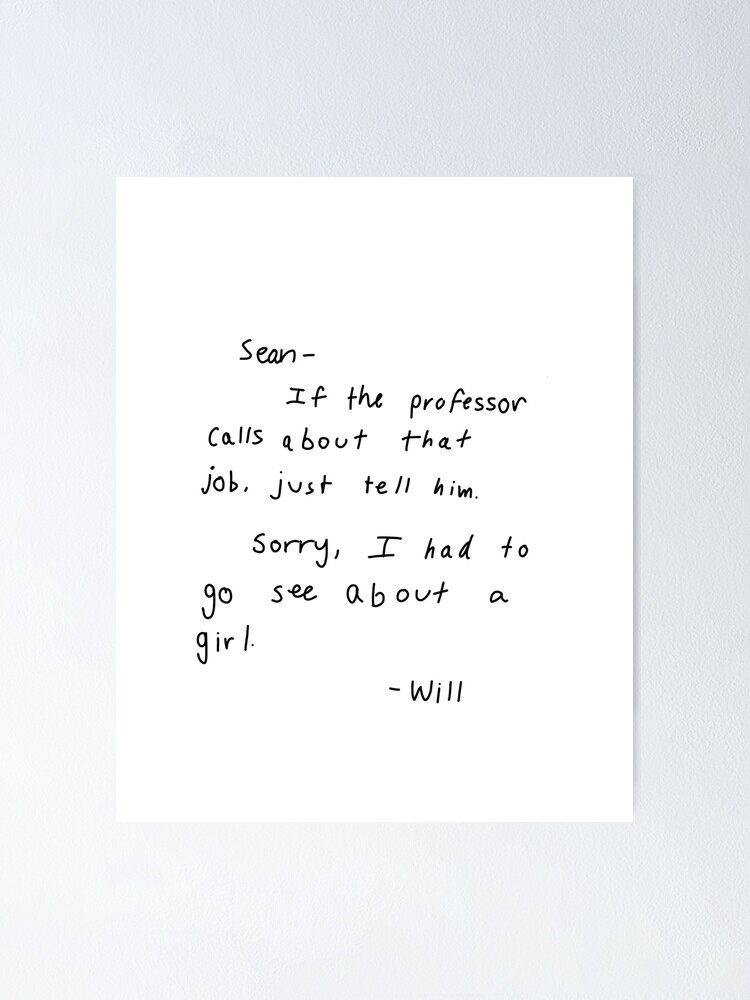 Sean-
If the professor
calls about that
job, just tell him.
Sorry, I had to
go see about a
girl.
-Will